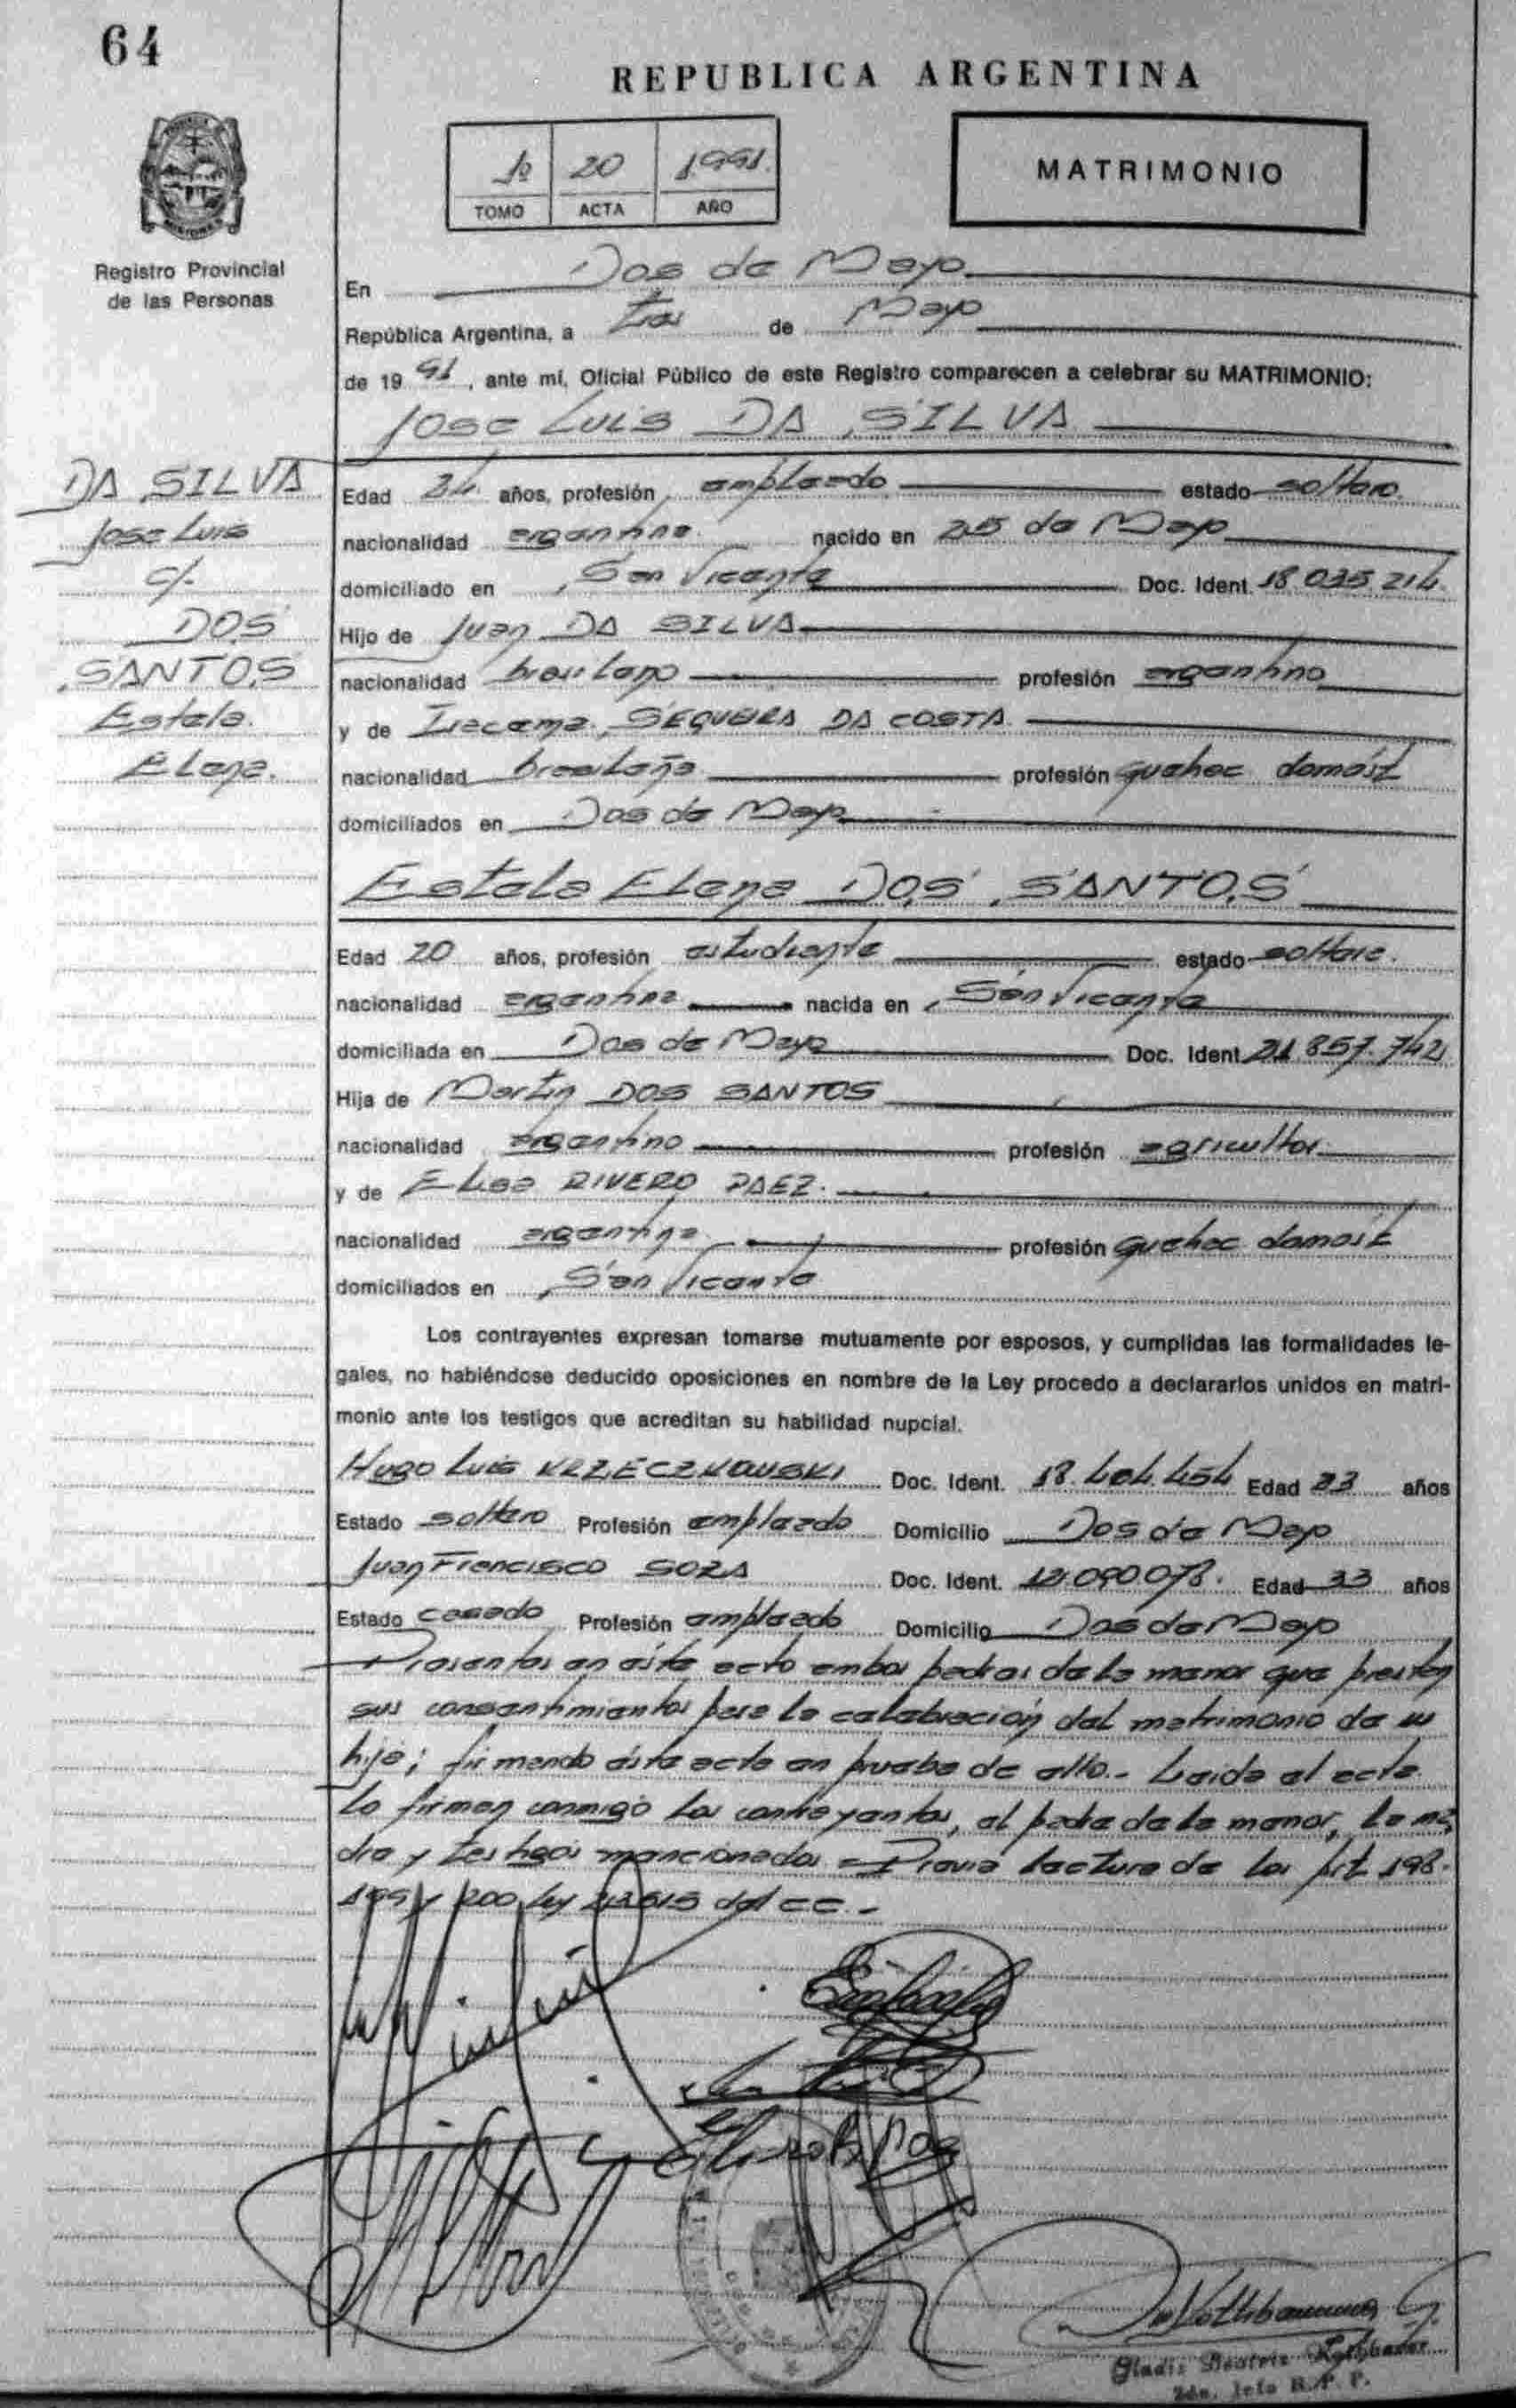 64
REPUBLICA ARGENTINA
1º 20 1991
TOMO ACTA AÑO
MATRIMONIO
Registro Provincial
de las Personas
En Dos de Mayo
República Argentina, a tres de Mayo
de 19 91, ante mí, Oficial Público de este Registro comparecen a celebrar su MATRIMONIO:
Jose Luis DA SILVA
DA SILVA
Jose Luis
c/.
DOS
SANTOS
Estela
Elena.
Edad 24 años, profesión empleado estado soltero.
nacionalidad argentina nacido en 25 de Mayo
domiciliado en San Vicente Doc. Ident. 18.035.214.
Hijo de Juan DA SILVA
nacionalidad brasilero profesión argentino
y de Iracema SEQUEIRA DA COSTA
nacionalidad brasileña profesión quehac domést
domiciliados en Dos de Mayo
Estela Elena DOS SANTOS
Edad 20 años, profesión estudiante estado soltera.
nacionalidad argentina nacida en San Vicente
domiciliada en Dos de Mayo Doc. Ident. 21.857.742
Hija de Martin DOS SANTOS
nacionalidad argentino profesión agricultor
y de Elisa RIVERO PAEZ.
nacionalidad argentina profesión quehac domést
domiciliados en San Vicente
Los contrayentes expresan tomarse mutuamente por esposos, y cumplidas las formalidades le-
gales, no habiéndose deducido oposiciones en nombre de la Ley procedo a declararlos unidos en matri-
monio ante los testigos que acreditan su habilidad nupcial.
Hugo Luis KRZECZKOWSKI Doc. Ident. 18.404.454 Edad 23 años
Estado soltero Profesión empleado Domicilio Dos de Mayo
Juan Francisco SOZA Doc. Ident. 12.090.078. Edad 33 años
Estado casado Profesión empleado Domicilio Dos de Mayo
Presentes en éste acto ambos padres de la menor que prestan
sus consentimientos para la celebración del matrimonio de su
hija; firmando ésta acta en prueba de ello.- Leida el acta
la firman conmigo los contrayentes, el padre de la menor, la ma
dre y testigos mencionados = Previa lectura de los Art 198-
199 y 200 Ley 23.515 del CC.-
Gladis Beatriz
2da. Jefa R. P. P.